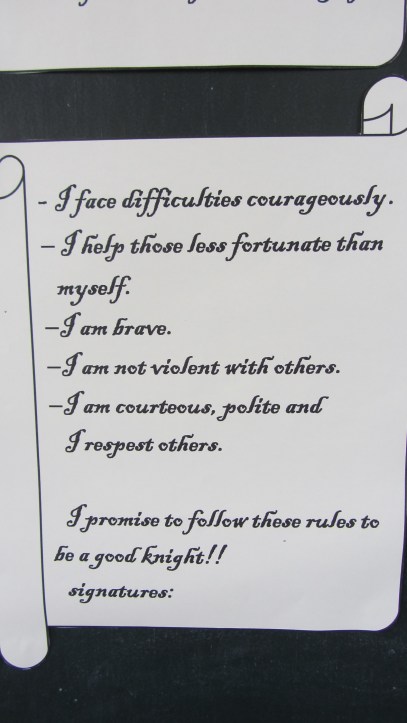 - I face difficulties courageously.
- I help those less fortunate than
myself.
-I am brave.
-I am not violent with others.
-I am courteous, polite and
I respest others.
I promise to follow these rules to
be a good knight!!
signatures: